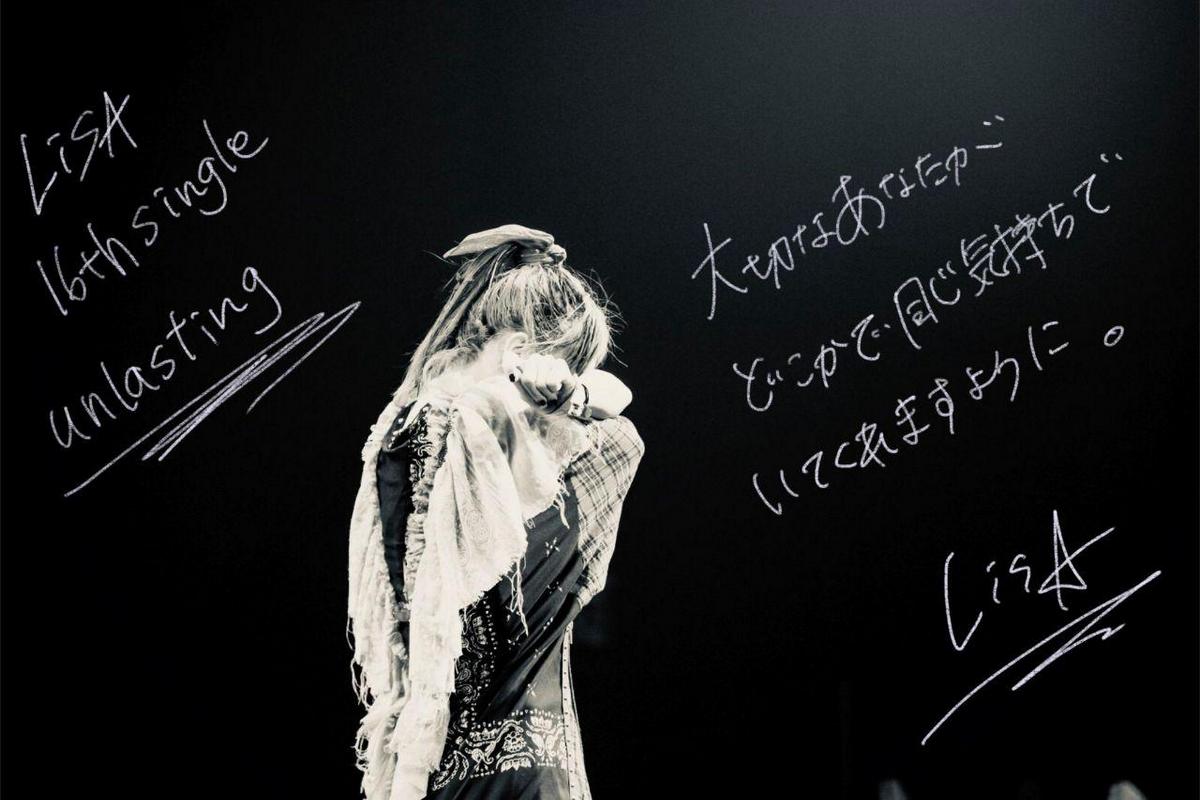 LiSA
16th single
unlasting
大切なあなたが
どこかで同じ気持ちで
いてくれますように。
LiSA